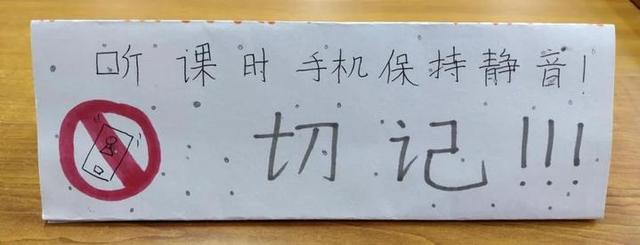 听课时手机保持静音!
切记!!!